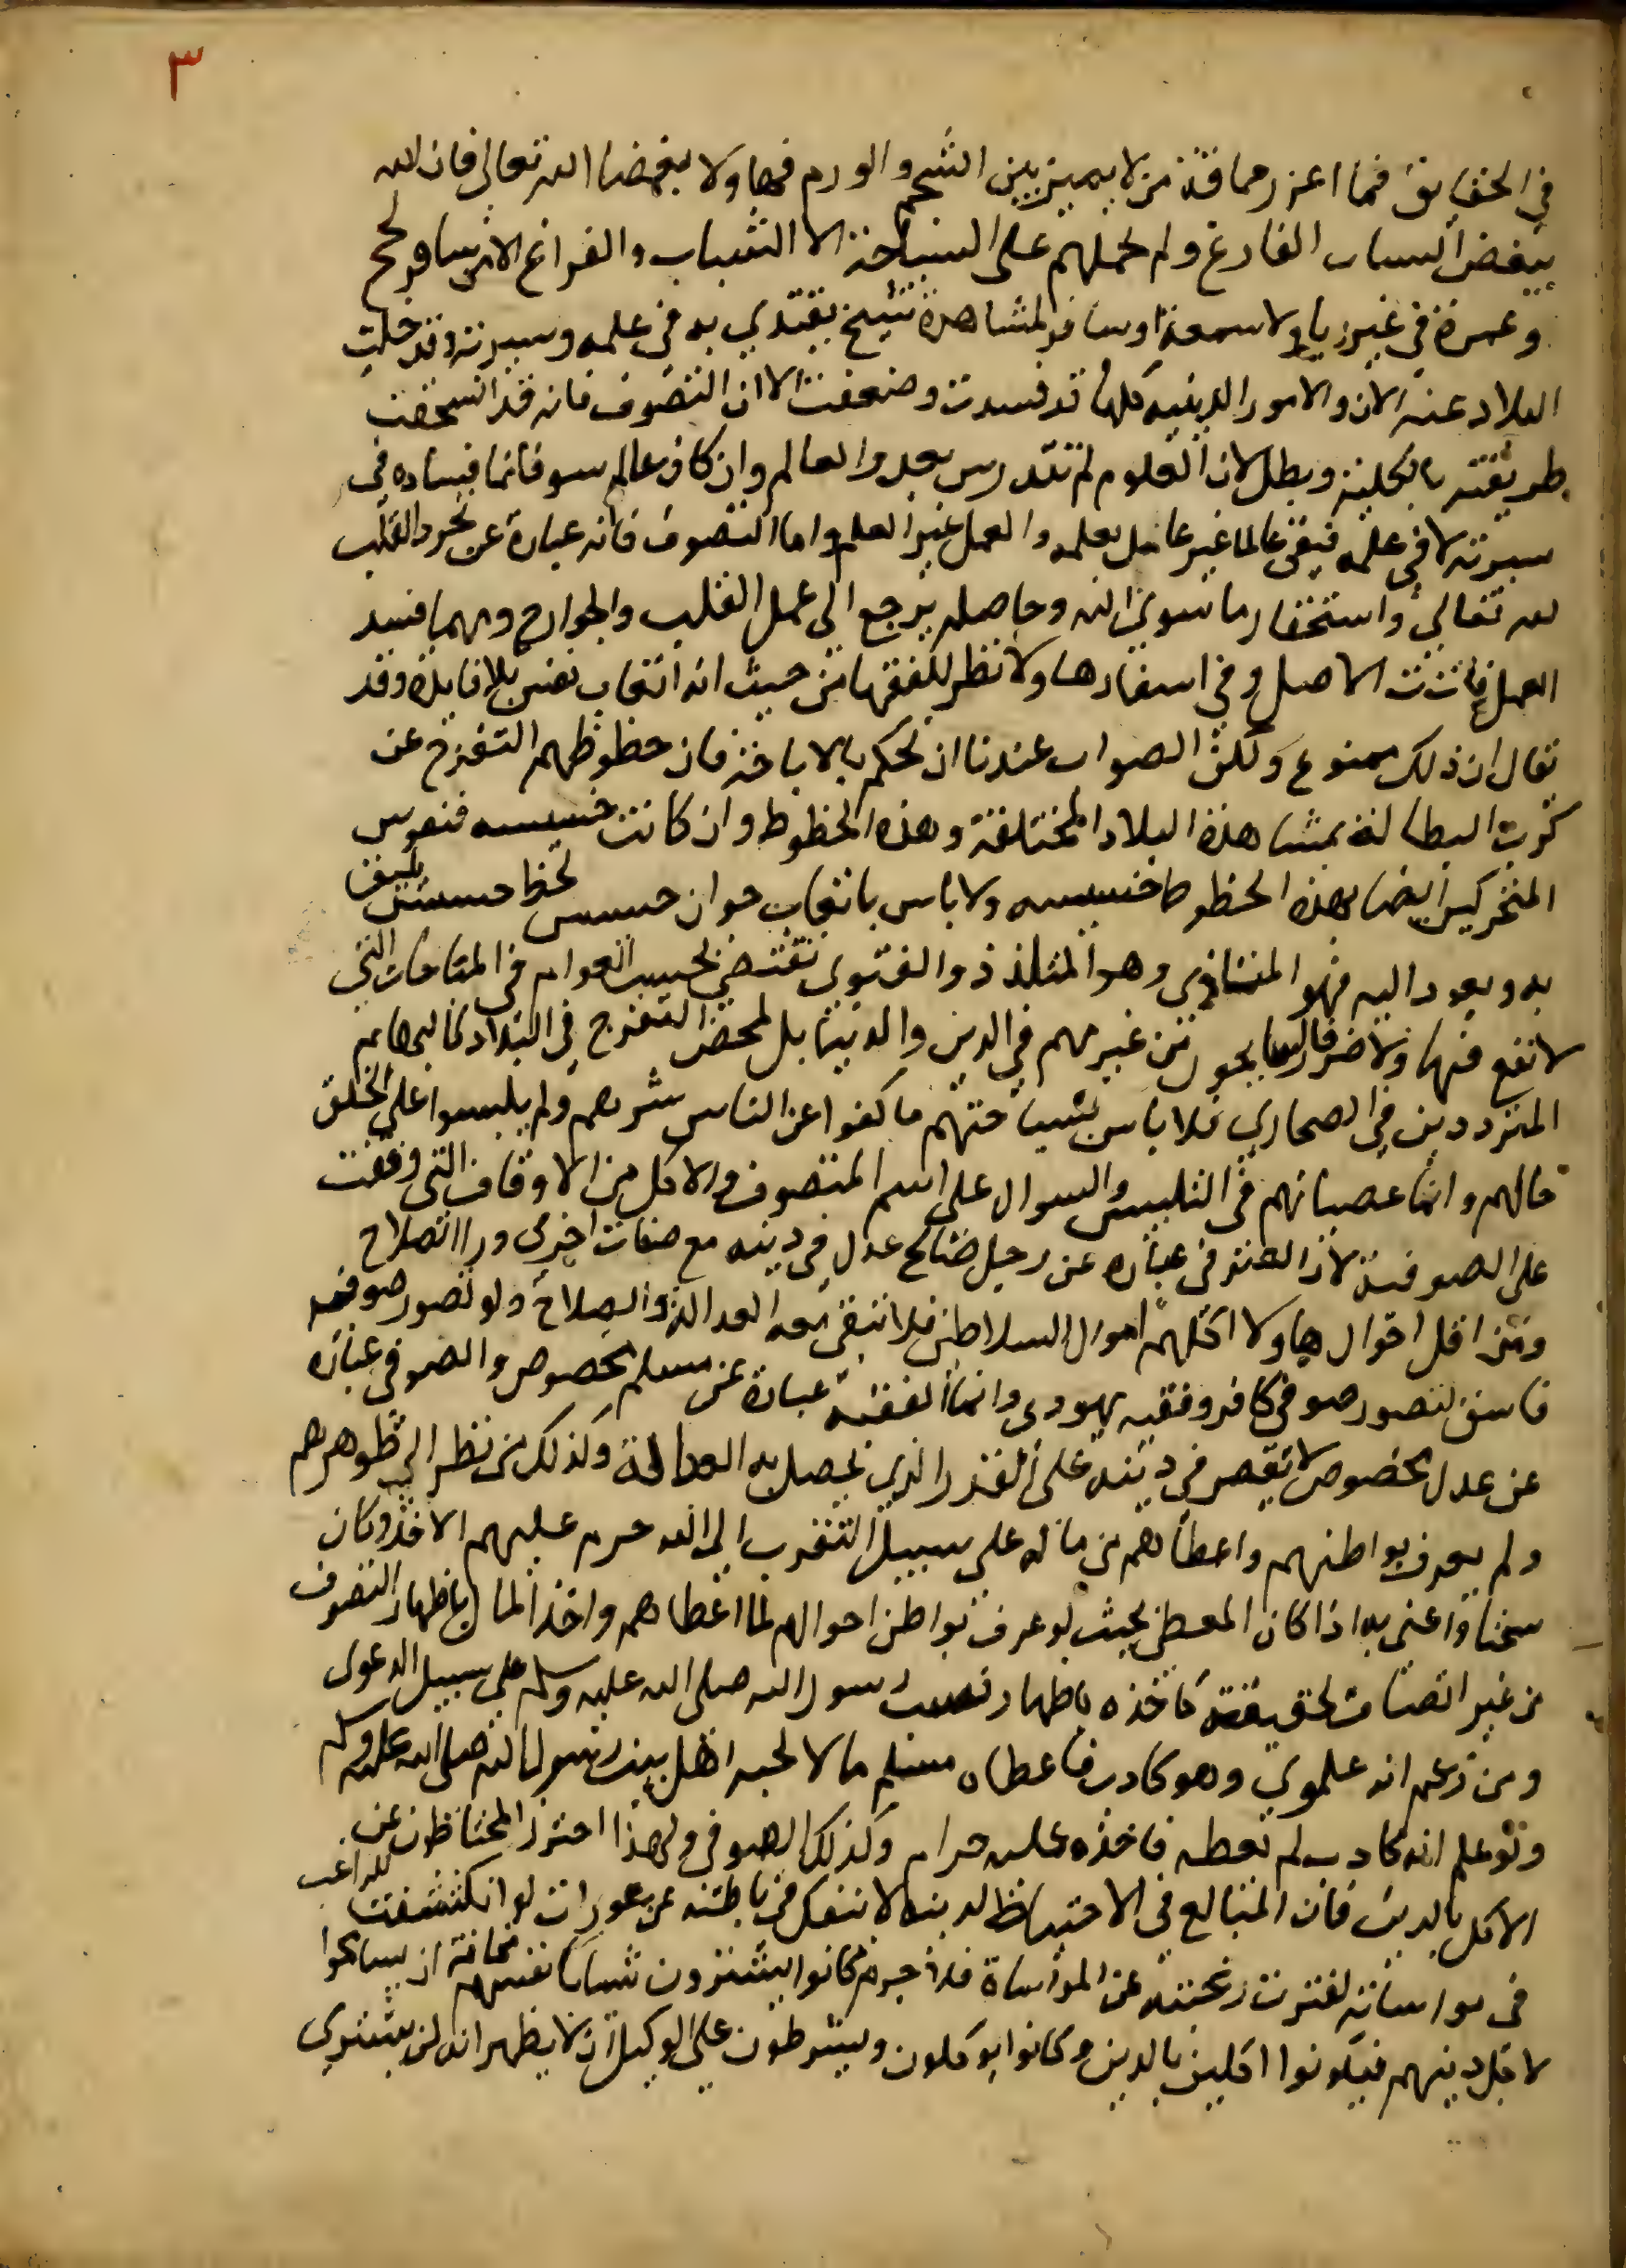 ٣
في الحقايق فما اعزر حماقة من لا يميز بين الشحم والورم فهاولا بغضا الله تعالى فان الله
يبغض الساب الفارغ ولم يحملهم على السياحة الا الشباب والفراغ الا من سافر لحج
وعمرة في غير ريا ولا سمعة او سافر لمشاهدة شيخ يقتدي به في علمه وسيرته وقد خلت
البلاد عنه الان والامور الدينيه كلها قد فسدت وضعفت الا ان التصوف فانه قد انمحقت
طريقته بالكلية وبطل لان العلوم لم تندرس بعد والعالم وان كان عالم سو فانما فساده في
سيرته لا في علمه فيبقى عالما غير عامل بعلمه والعمل غير العلم واما التصوف فانه عبارة عن تجرد القلب
لله تعالى واستحقار ما سوى الله وحاصله يرجع الى عمل القلب والجوارح ومهما فسد
العمل فاتت الاصل وفي اسفارها ولا نظر للفقها من حيث انه اتعاب نفس بلا فايدة وقد
نقال ان ذلك ممنوع ولكن الصواب عندنا ان نحكم بالاباحة فان حظوظهم التفرج عن
كرب البطالة بمشاهدة البلاد المختلفة وهذه الحظوظ وان كانت خسيسه فنفوس
المتحركين ايضا بهذه الحظوظ خسيسه ولا باس باتعاب حوان حسيس لحظ حسيس يليق
به ويعود اليه فهو المتاذي وهو المتلذذ والفتوى تقتضي تحسب العوام في المباحات التي
لا نفع فيها ولا ضرر فالسا يحون من غير مهم في الدين والدنيا بل لمحض التفرج في البلاد كالبهايم
المترددين في الصحاري فلا باس بسياحتهم ما كفوا عن الناس شرهم ولم يلبسوا على الخلق
حالهم وانما عصيانهم في التلبيس والسوال على اسم المتصوف والاكل من الاوقاف التي وقفت
على الصوفية لان الصوفي عباره عن رجل صالح عدل في دينه مع صفات اخرى ورا الصلاح
ومن اقل احوال هاولا اكلهم اموال السلاطين فلا تبقى معه العدالة والصلاح ولو تصور صوفي
فاسق لتصور صوفي كافر وفقيه يهودي وانما الفقيه عبارة عن مسلم مخصوص والصوفي عباره
عن عدل مخصوص لا يقصر في دينه على القدر الذي يحصل به العدالة وكذلك من نظر الى ظواهرهم
ولم يعرف بواطنهم واعطاهم من ماله على سبيل التقرب الى الله حرم عليهم الاخذ وكان
سحتا واعني به اذا كان المعطي بحيث لو عرف بواطن احوالهم لما اعطاهم واخذ المال باظهار التصوف
من غير اتصاف بحقيقته كاخذه باظهار نسب رسول الله صلى الله عليه وسلم على سبيل الدعوى
ومن زعم انه علوي وهو كاذب فاعطاه مسلم مالا لحبه اهل بيت رسول الله صلى الله عليه وسلم
ولو علم انه كاذب لم يعطه فاخذه عليه حرام وكذلك الصوفي ولهذا احترز المحتاطون عن
الاكل بالدين فان المبالغ في الاحتياط لدينه لا ينفك في باطنه عن عورات لو انكشفت للراغب
في مواساته لفترت رغبته عن المواساة فلا جرم كانوا يشترون شيا بانفسهم مخافة ان يسامحوا
لاجل دينهم فيكونوا اكلين بالدين وكانوا يوكلون ويشترطون على الوكيل ان لا يظهر انه لمن يشتري